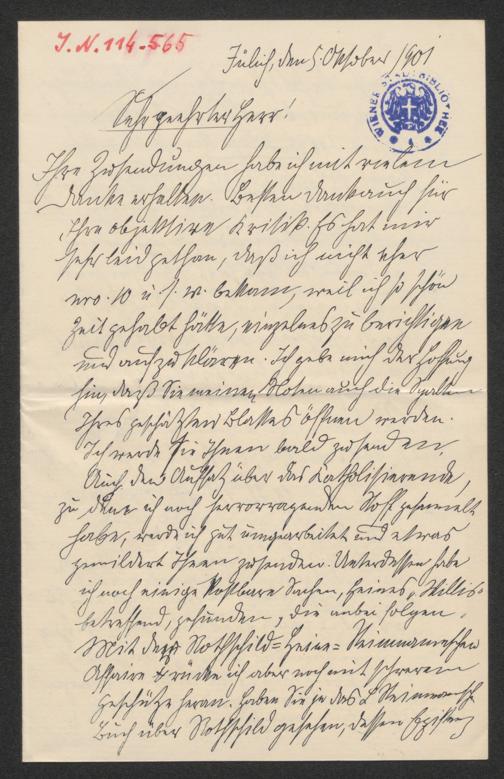 I.N. 114.565
Jülich, den 5. Oktober 1901
WIENER STADTBIBLIOTHEK
Sehr geehrter Herr!
Ihre Zusendungen habe ich mit vielem
Danke erhalten. Besten Dank auch für
Ihre objektive Kritik. Es hat mir
sehr leid gethan, daß ich nicht eher
nro. 10 u. s. w. bekam, weil ich so schön
Zeit gehabt hätte, einzelnes zu berichtigen
und aufzuklären. Ich gebe mich der Hoffnung
hin, daß Sie meinen Noten auch die Spalten
Ihres geschätzten Blattes öffnen werden.
Ich werde Sie Ihnen bald zusenden.
Auch den Aufsatz über das Katholisierende,
zu dem ich noch hervorragenden Stoff gesammelt
habe, werde ich gut umgearbeitet und etwas
gemildert Ihnen zusenden. Unterdessen habe
ich noch einige kostbare Sachen, Heines
betreffend, gefunden, die anbei folgen.
Mit der Rothschild=Heine=
Affaire rücke ich aber noch mit schwerem
Geschütze heran. Haben Sie ja das
Buch über Rothschild gesehen, dessen Existenz